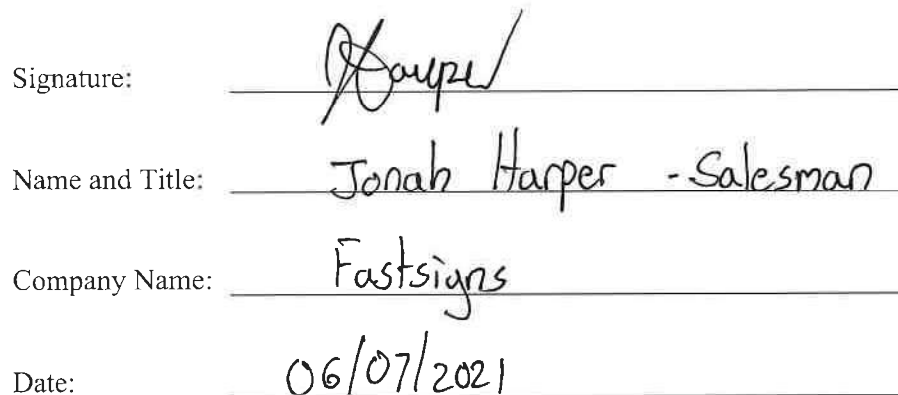 Signature: Harper
Name and Title: Jonah Harper - Salesman
Company Name: Fastsigns
Date: 06/07/2021